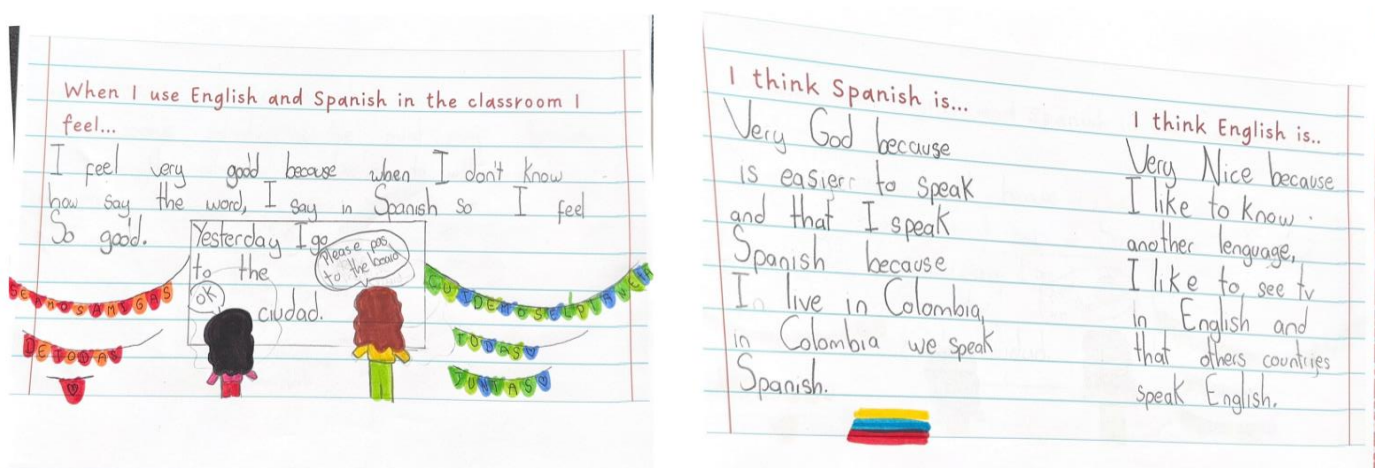 When I use English and Spanish in the classroom I
feel...
I feel very good because when I don't know
how say the word, I say in Spanish so I feel
So good.
Yesterday I go
to the
ciudad.
Please pas
to the board
OK
SEAMOSAMIGAS
DETODAS
CUIDEMOSELPLANETA
TODAS
JUNTAS
I think Spanish is...
Very God because
is easier to speak
and that I speak
Spanish because
I live in Colombia,
in Colombia we speak
Spanish.
I think English is..
Very Nice because
I like to know
another lenguage,
I like to see tv
in English and
that others countries
speak English.